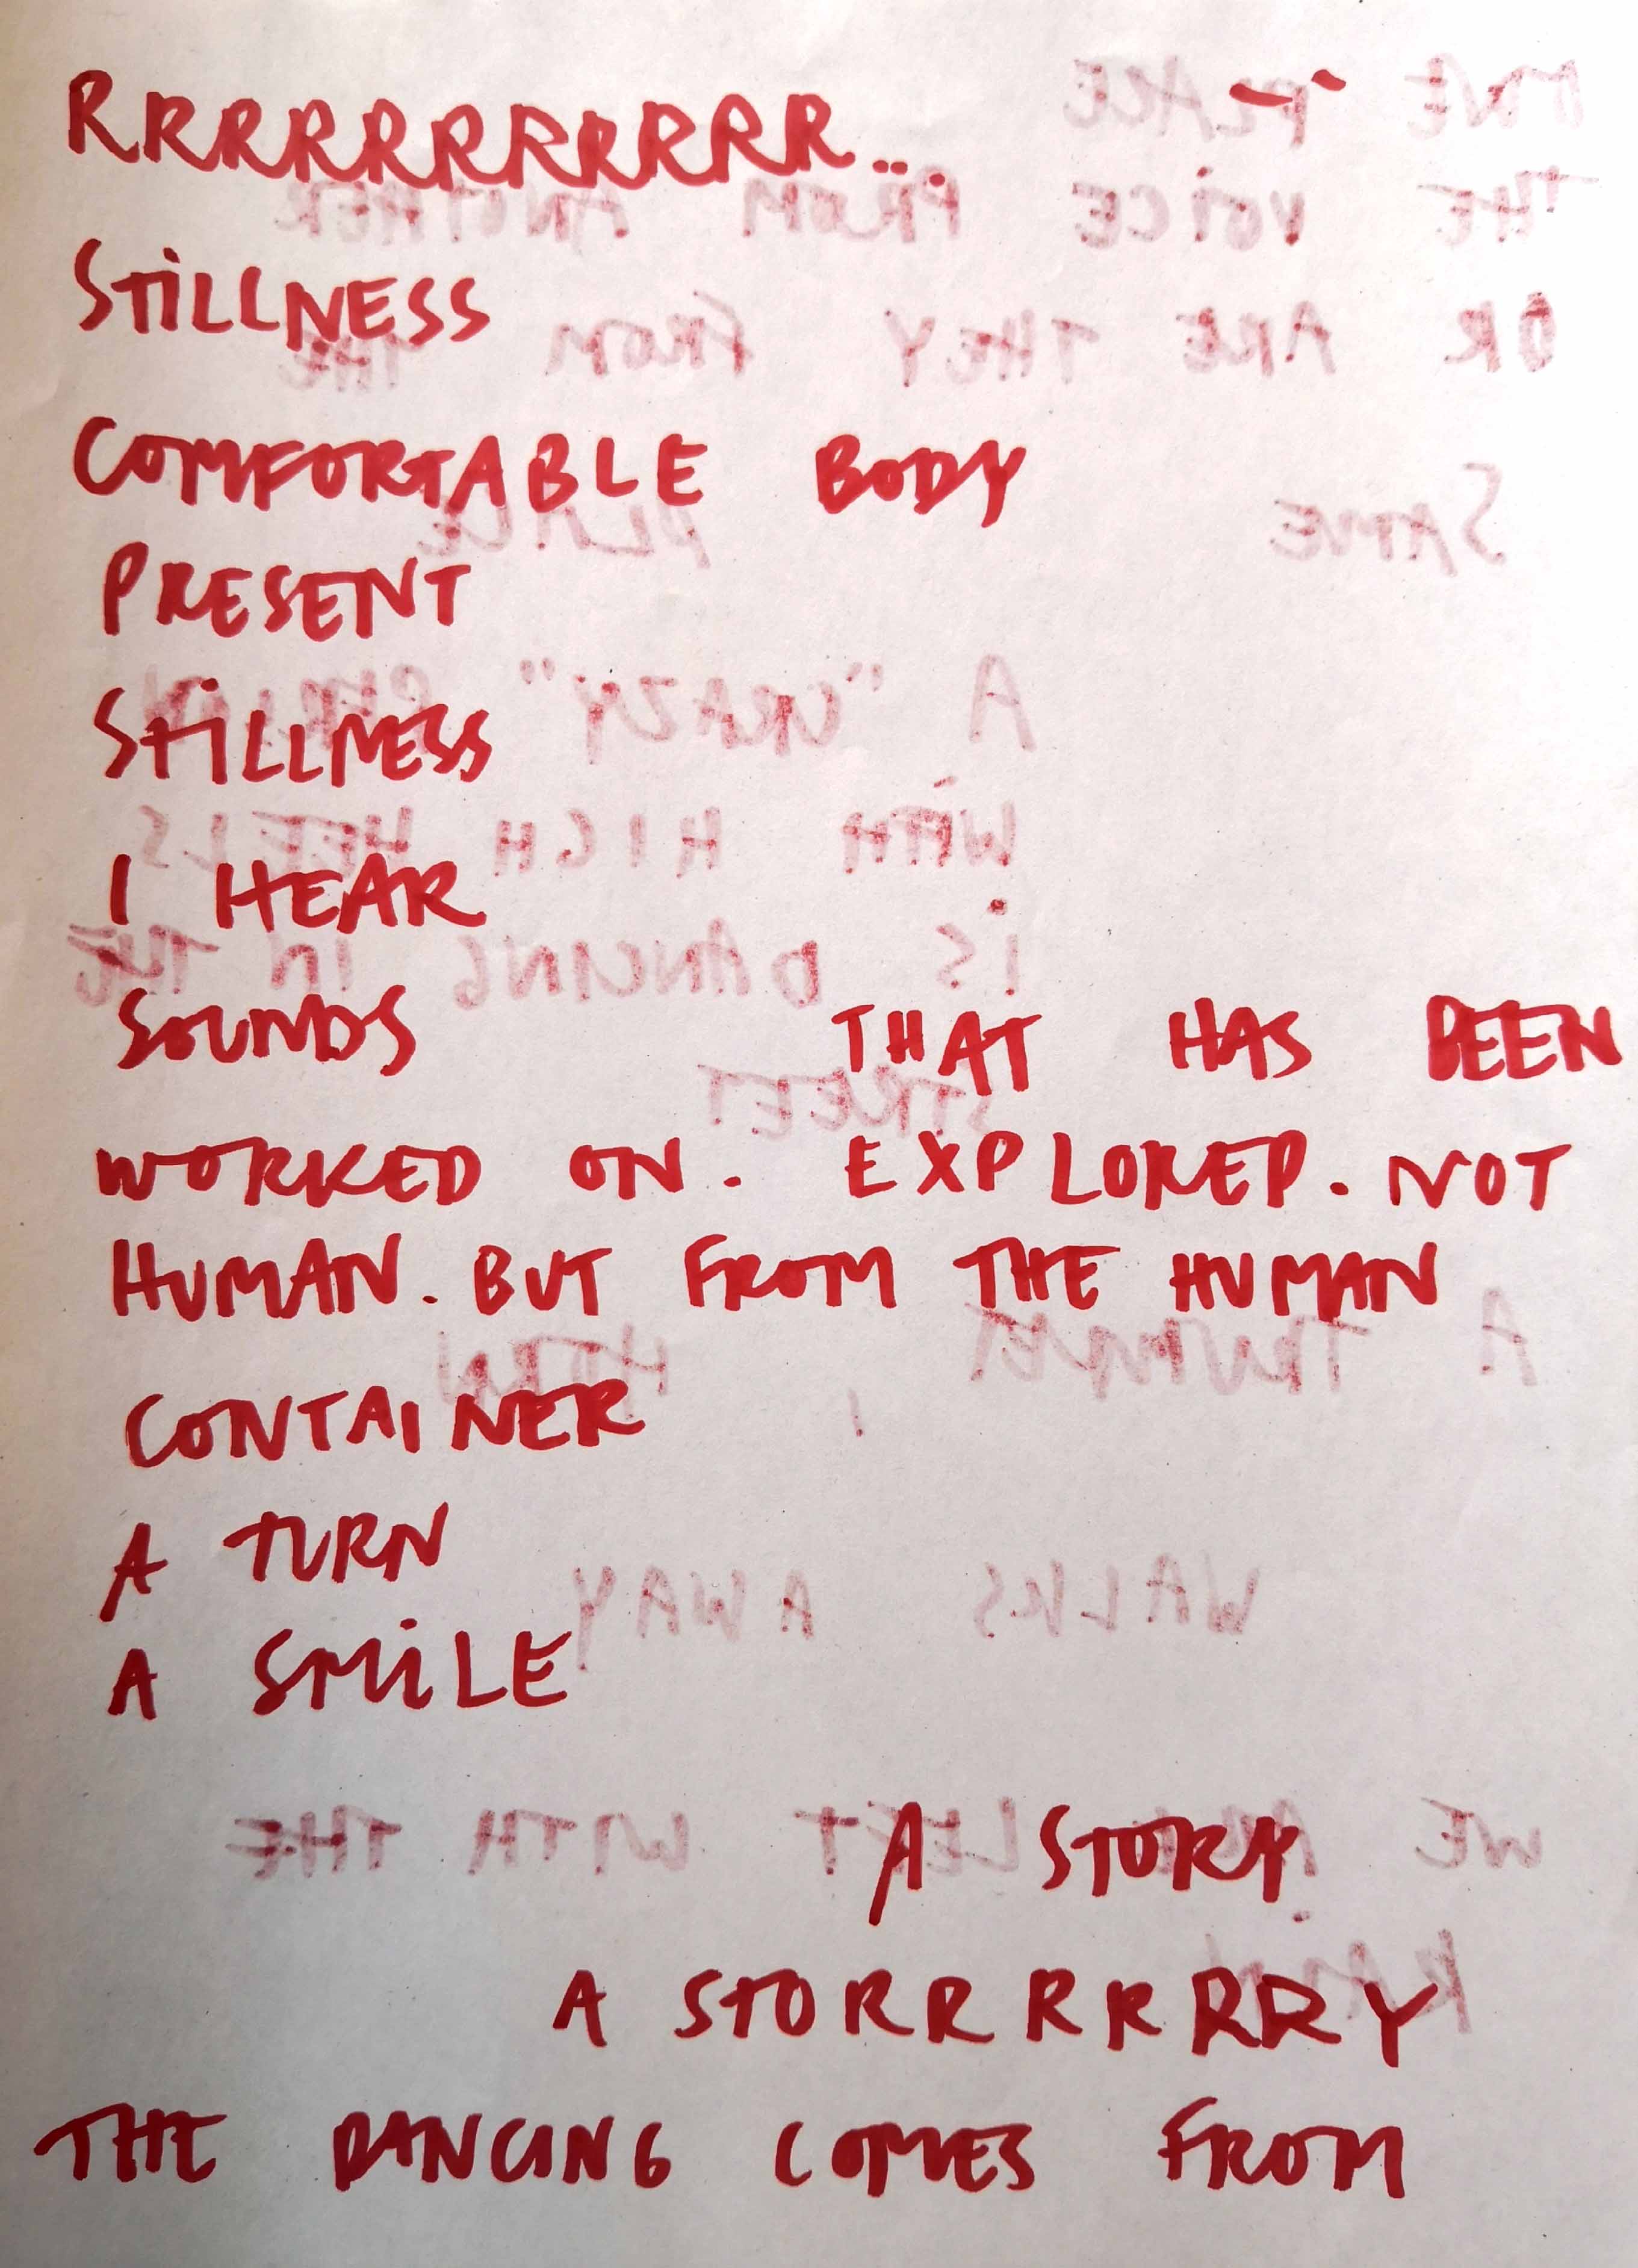 RRRRRRRRRRR...
STiLLNESS
COMFORTABLE BODY
PRESENT
STiLLNESS
I HEAR
SOUNDS THAT HAS BEEN
WORKED ON. EXPLORED. NOT
HUMAN. BUT FROM THE HUMAN
CONTAINER
A TURN
A SMiLE
A STORY.
A STORRRRRRY
THE DANCING COMES FROM